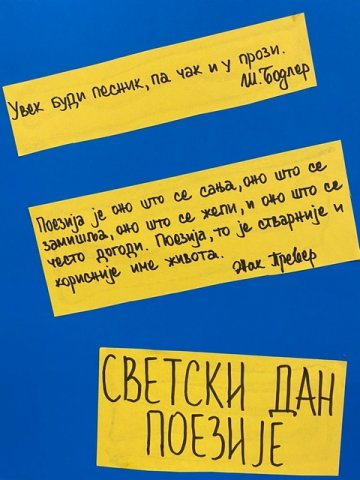 Увек буди песник, па чак и у прози.
Ш. Бодлер
Поезија је оно што се сања, оно што се
замишља, оно што се жели, и оно што се
често догоди. Поезија, то је стварније и
корисније име живота.
Жак Превер
СВЕТСКИ ДАН
ПОЕЗИЈЕ